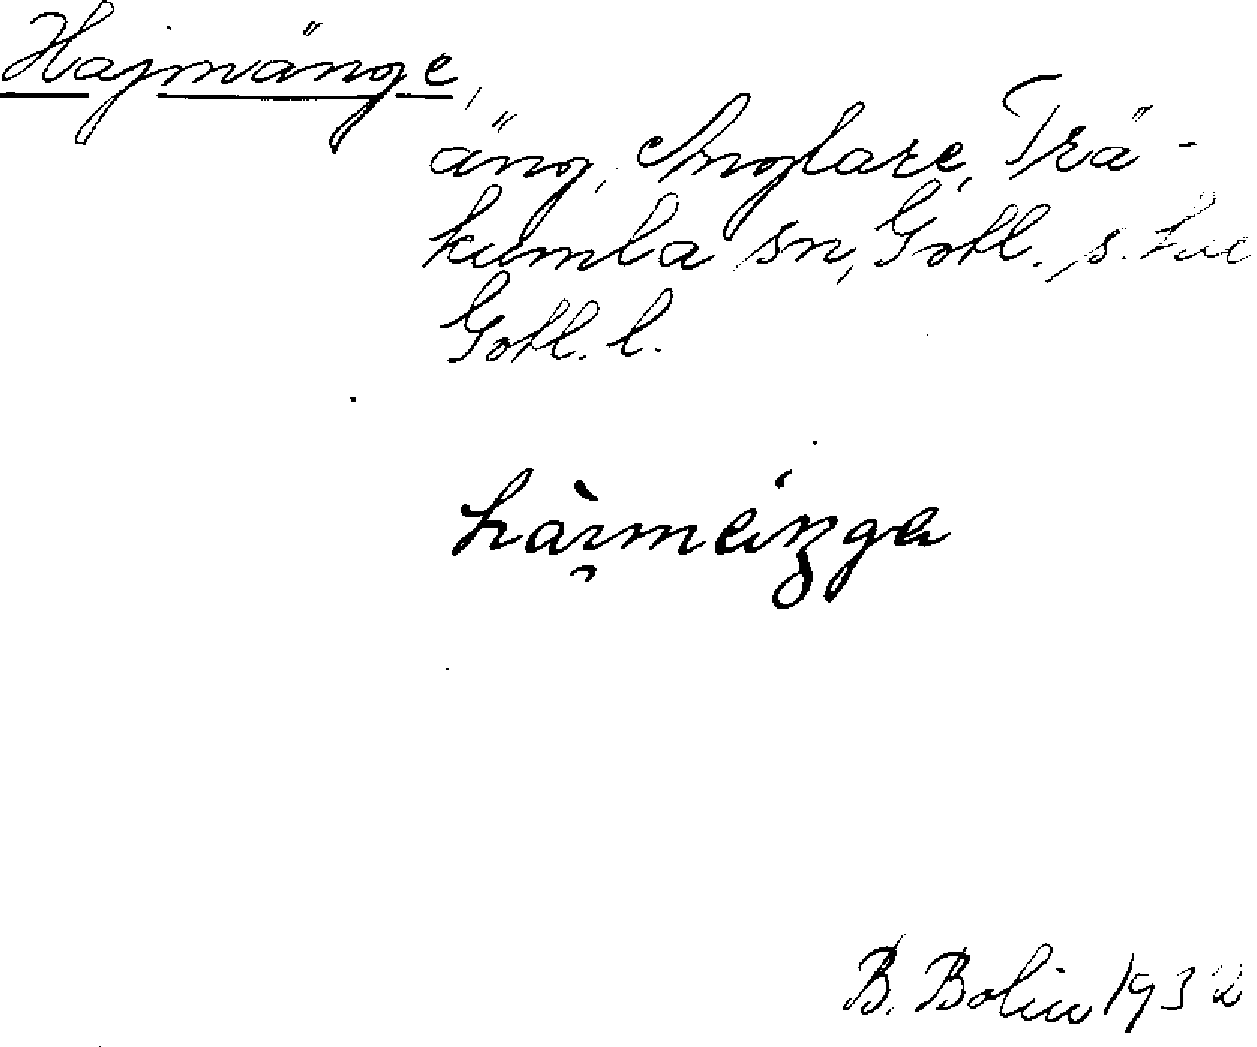 Hajmänge,
äng, Anglare, Trä-
kumla sn, Gotl. s. hd
Gotl. l.
B. Bolin 1932